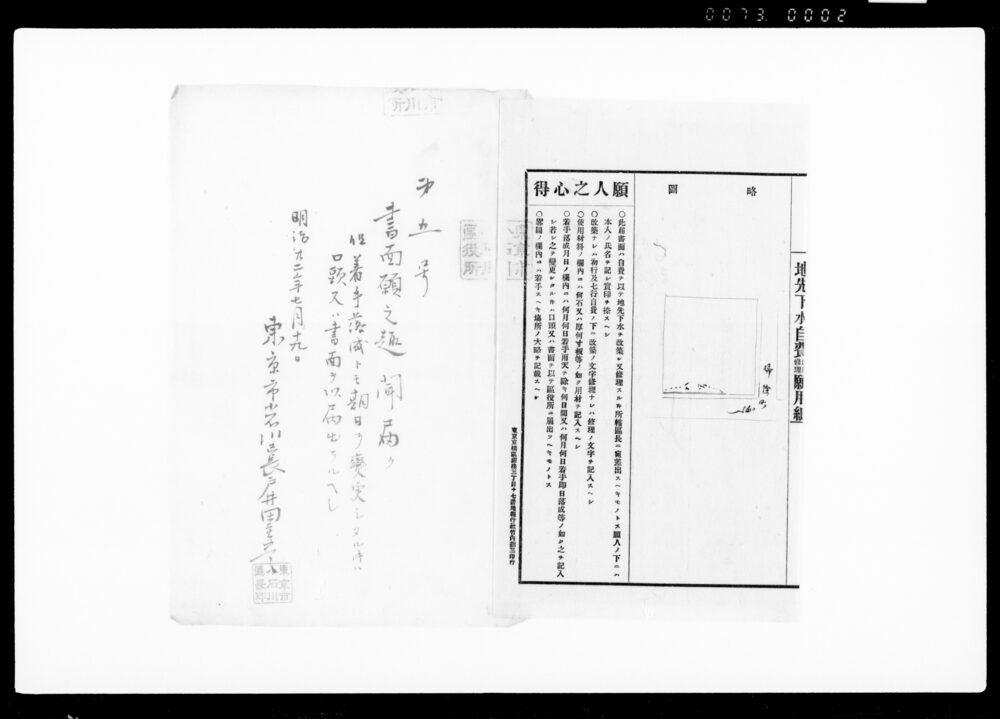 0073. 0002
地先下水自費
願用紙
略圖
願人之心得
○此願書面ハ自費ヲ以テ地先下水ヲ改築シ又修理スルトキ所轄區長ニ宛差出スヘキモノトス願人ノ下ニハ
本人ノ氏名ヲ記シ實印ヲ捺スヘシ
○改築ナレハ初行及七行自費ノ下ニ改築ノ文字修理ナレハ修理ノ文字ヲ記入スヘシ
○使用材料ノ欄內ニハ何石又ハ厚何寸板等ノ如ク用材ヲ記入スヘシ
○着手落成月日ノ欄內ニハ何月何日着手雨天ヲ除キ何日間又ハ何月何日着手即日落成等ノ如ク之ヲ記入
シ若シ之ヲ變更シタルトキハ口頭又ハ書面ヲ以テ區役所ニ屆出ツヘキモノトス
○略圖ノ欄內ニハ着手スヘキ場所ノ大略ヲ記載スヘシ
第五号
書面願之趣聞届ク
但着手落成トモ期日ヲ變更シタル時ハ
口頭又ハ書面ヲ以届出ツルヘシ
明治廿二年七月十九日
東京市小石川區長戸井田
東京市
小石川
區長印